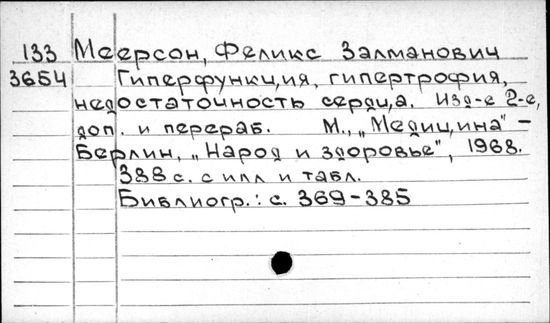 133 Меерсон, Феликс Залманович
3654 Гиперфункция, гипертрофия,
недостаточность сердца. Изд-е 2-е,
доп. и перераб. М., „Медицина" –
Берлин, „Народ и здоровье", 1968.
388 с. с илл и табл.
Библиогр.: с. 369-385